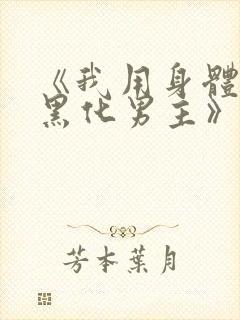 《我用身體
黑化男主》
芳本葉月